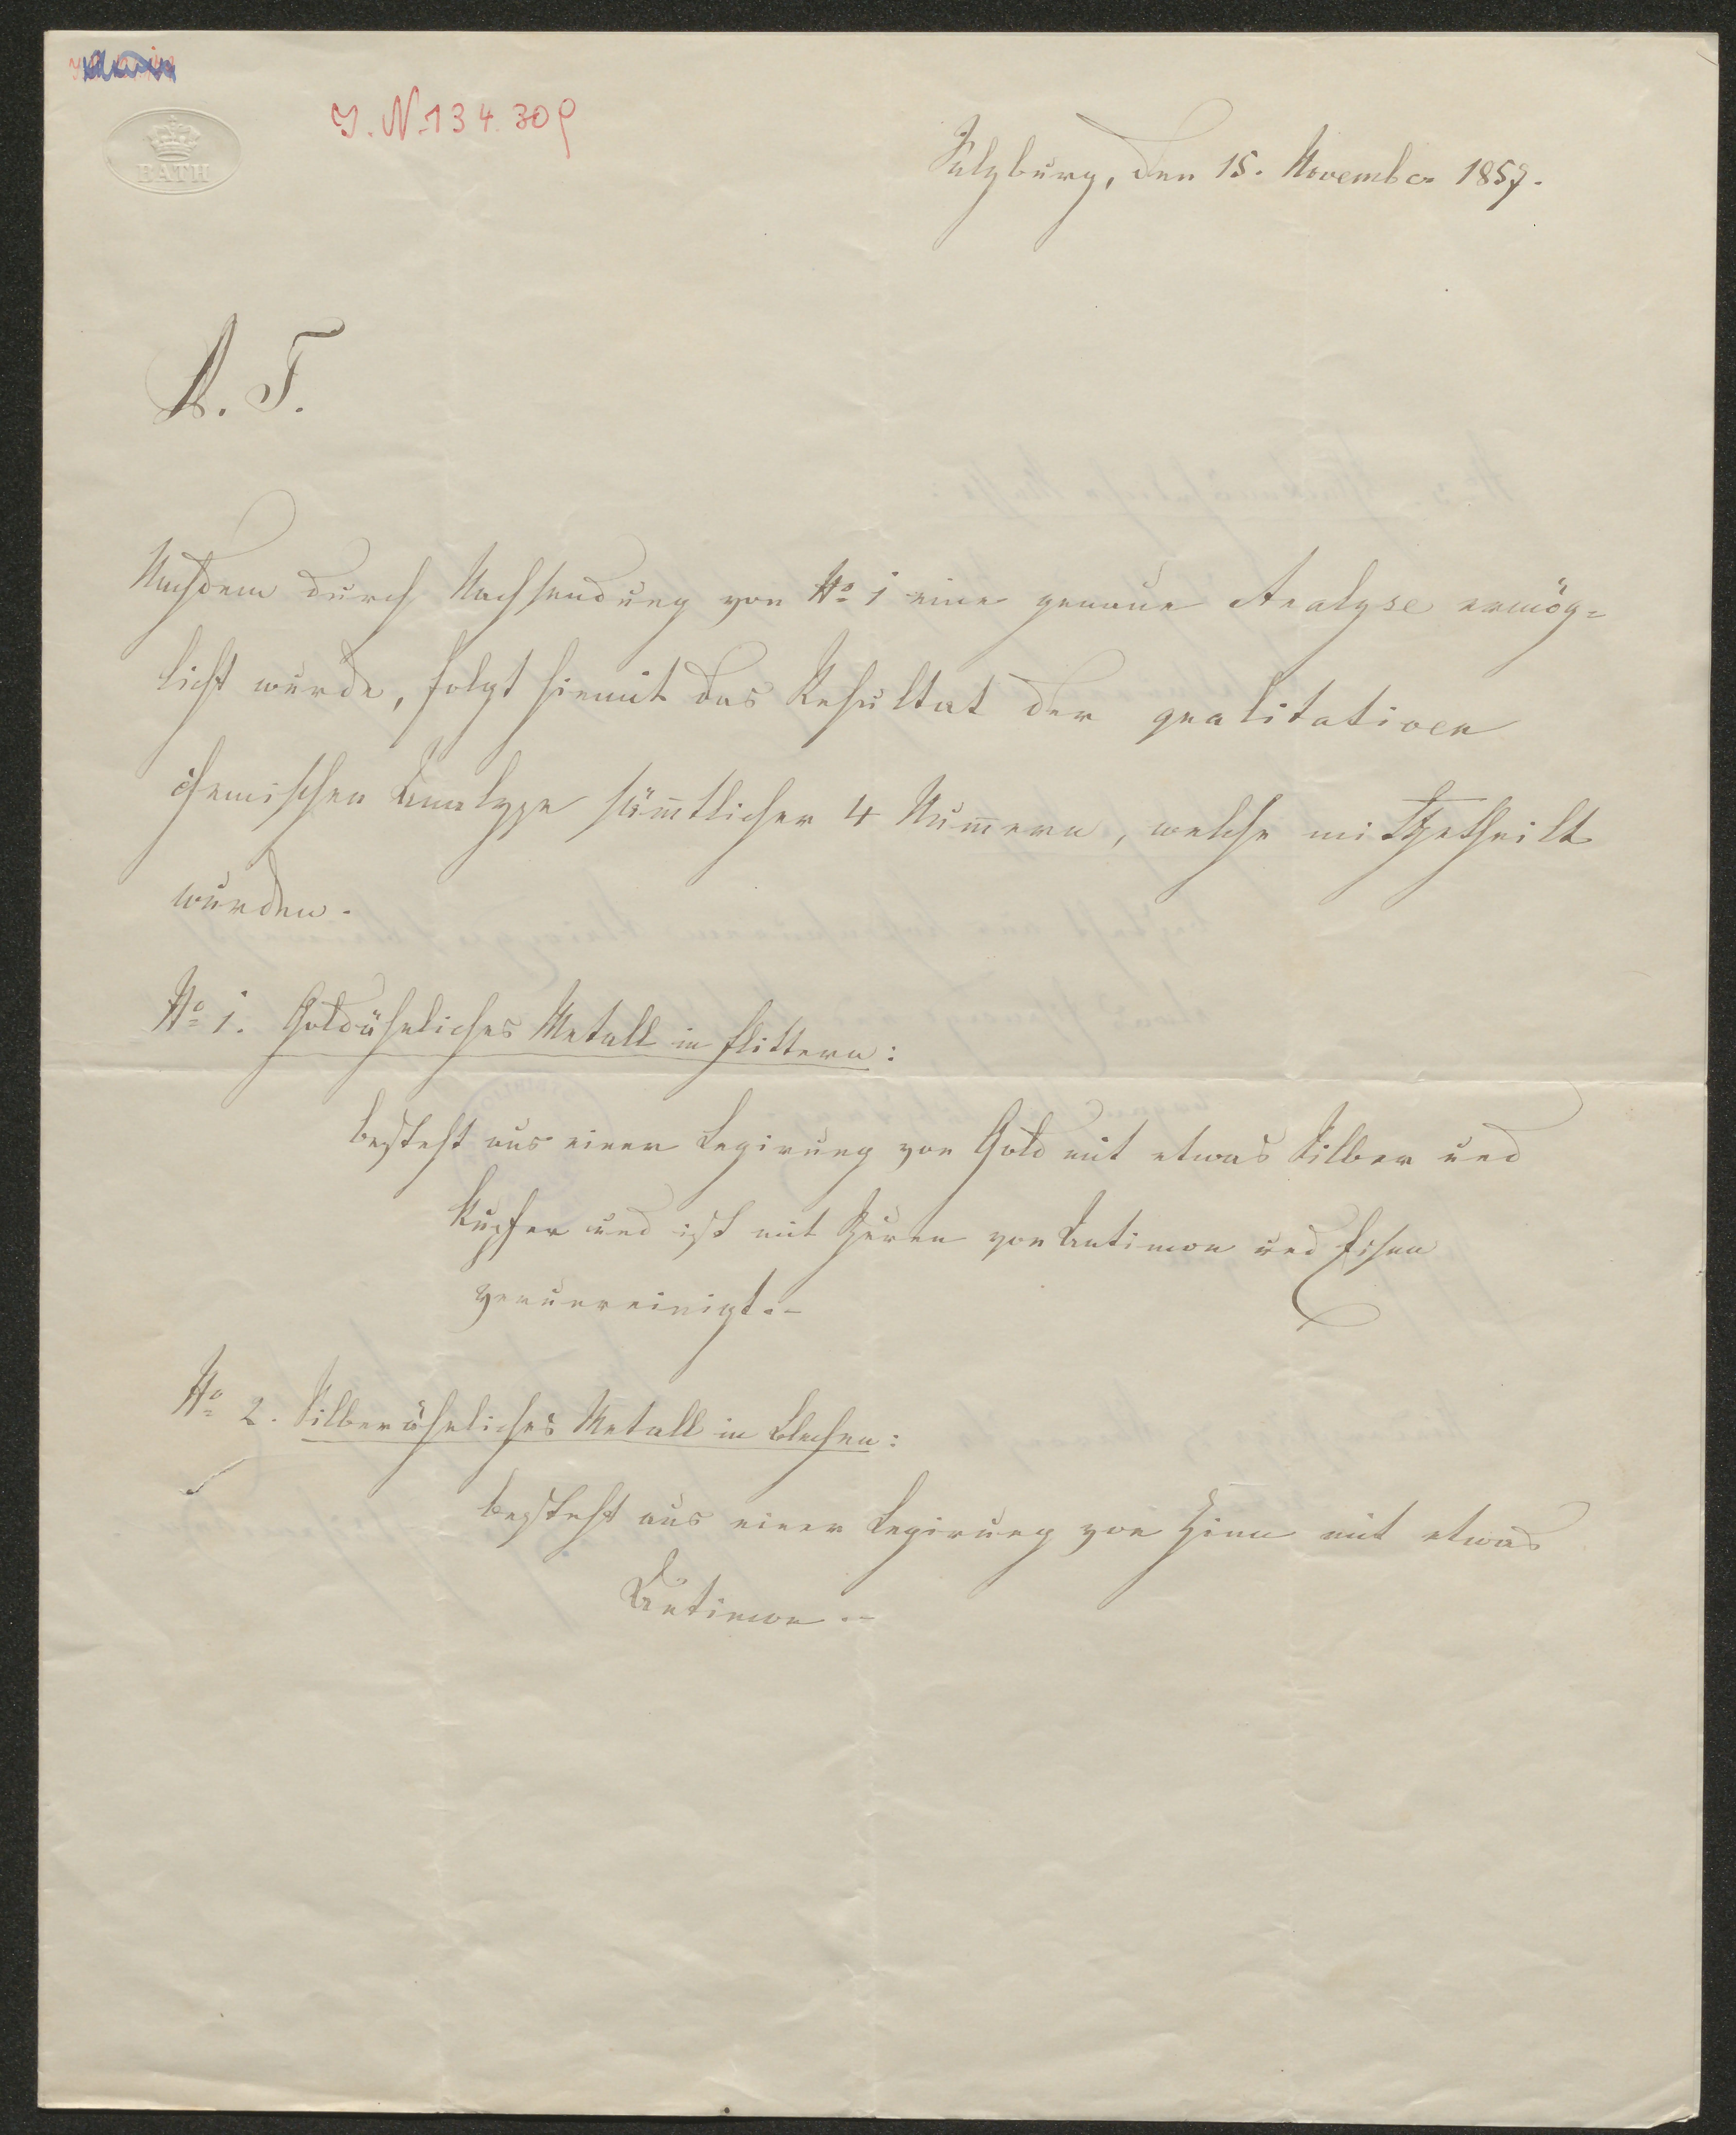 BATH
I. N. 134.309
Salzburg, den 15. November 1857.
P. T.
Nachdem durch Nachsendung von No 1 eine genaue Analyse ermög=
licht wurde, folgt hiemit das Resultat der qualitativen
chemischen Analyse sämtlicher 4 Num̅ern, welche mitgetheilt
wurden.
No 1. Goldähnliches Metall in Flittern:
besteht aus einer Legirung von Gold mit etwas Silber und
Kupfer und ist mit Spuren von Antimon und Eisen
verunreinigt.–
No 2. Silberähnliches Metall in Blechen:
besteht aus einer Legirung von Zinn mit etwas
Antimon.–